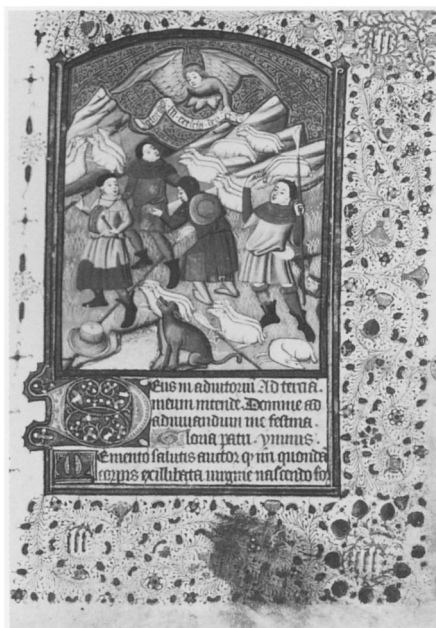 in excelsis
Deus in adiutoriū Ad terciā.
meum intende. Domine ad
adiuuandum me festina
Gloria patri. ymnus.
Memento salutis auctor qƺ nri quondā
corpis exillibata uirgine nascendo for